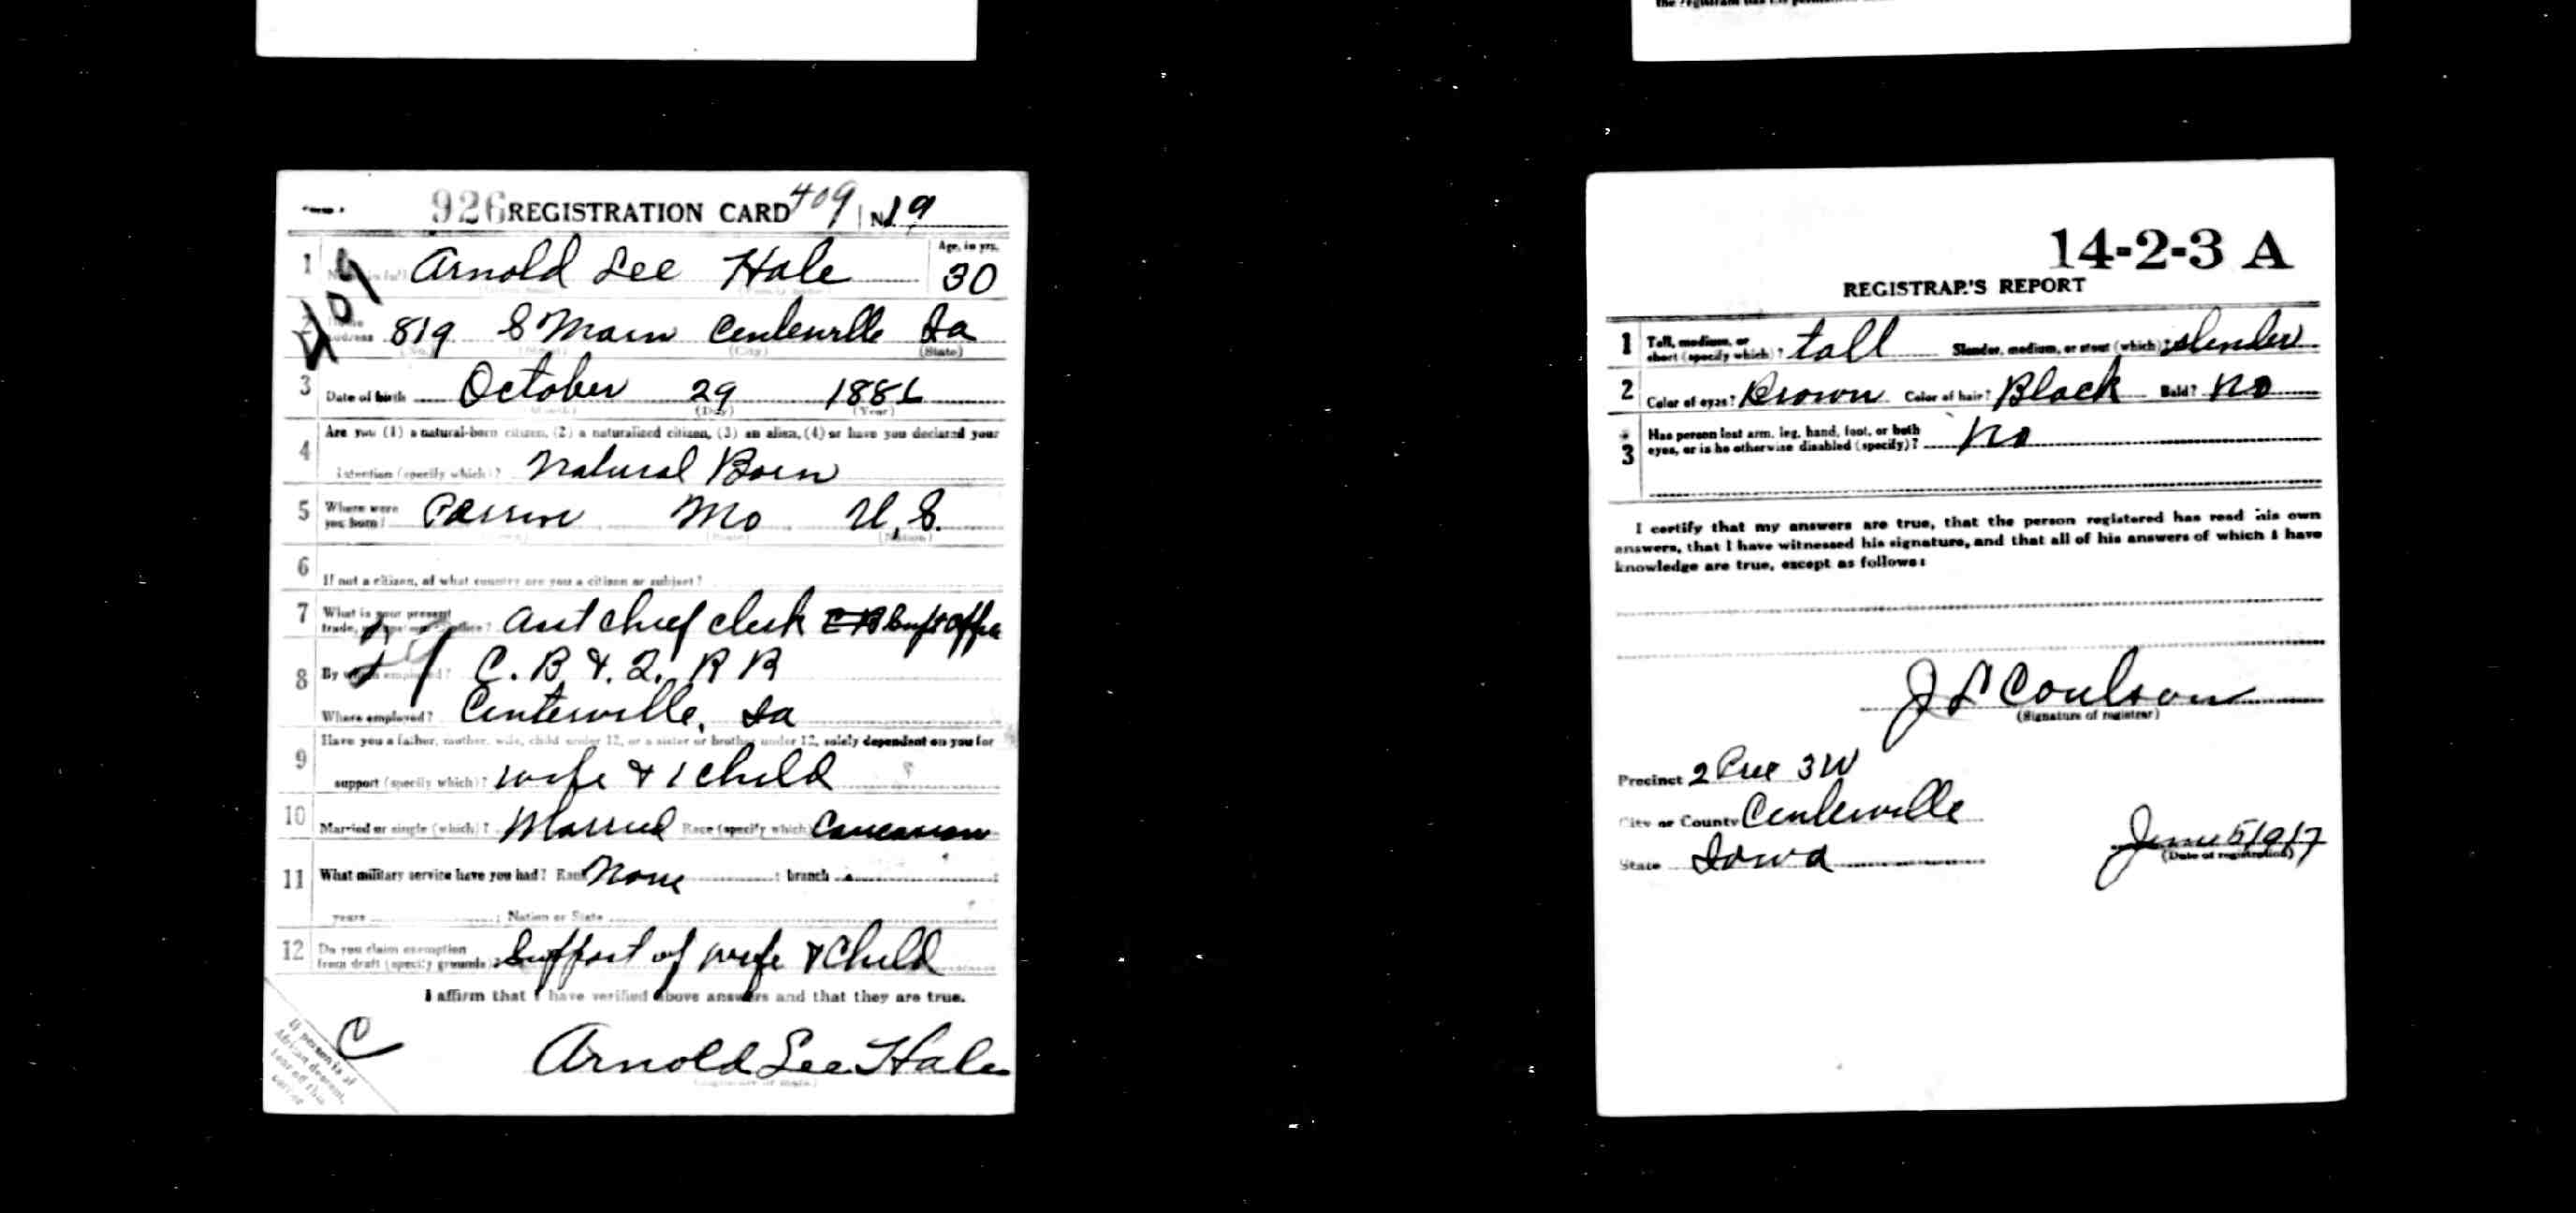 926 REGISTRATION CARD 409 No 19
1 Name in full Arnold Lee Hale Age, in yrs. 30
409
2 Home address 819 S Main Centerville Ia
(No.) (Street) (City) (State)
3 Date of birth October 29 1886
(Month) (Day) (Year)
4 Are you (1) a natural-born citizen, (2) a naturalized citizen, (3) an alien, (4) or have you declared your
intention (specify which)? Natural Born
5 Where were you born? Perrin Mo U.S.
(Town) (State) (Nation)
6 If not a citizen, of what country are you a citizen or subject?
7 What is your present trade, occupation, or office? Asst chief clerk Supt Office
8 By whom employed? C. B. & Q. R R
Where employed? Centerville, Ia
9 Have you a father, mother, wife, child under 12, or a sister or brother under 12, solely dependent on you for
support (specify which)? wife & 1 child
10 Married or single (which)? Married Race (specify which)? Caucasian
11 What military service have you had? Rank None ; branch ;
years ; Nation or State
12 Do you claim exemption from draft (specify grounds)? Support of wife & Child
I affirm that I have verified above answers and that they are true.
C
Arnold Lee Hale
(Signature or mark)
If person is of
African descent,
tear off this
corner
14-2-3 A
REGISTRAR'S REPORT
1 Tall, medium, or short (specify which)? tall Slender, medium, or stout (which)? slender
2 Color of eyes? Brown Color of hair? Black Bald? No
3 Has person lost arm, leg, hand, foot, or both
eyes, or is he otherwise disabled (specify)? No
I certify that my answers are true, that the person registered has read his own
answers, that I have witnessed his signature, and that all of his answers of which I have
knowledge are true, except as follows:
J L Coulson
(Signature of registrar)
Precinct 2 Prec 3W
City or County Centerville
State Iowa
June 5 1917
(Date of registration)